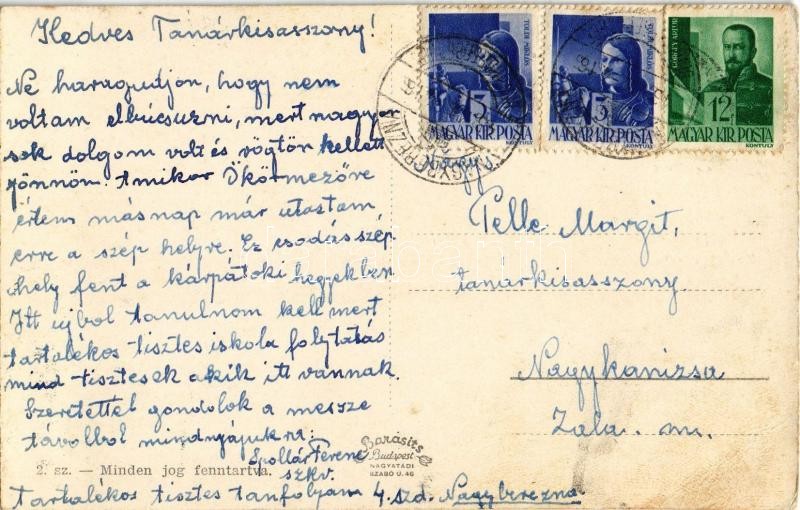 Kedves Tanárkisasszony!
Ne haragudjon, hogy nem
voltam elbúcsuzni, mert nagyon
sok dolgom volt és vögtön kellett
jönnöm. Amikor Ökörmezőre
értem másnap már utaztam
erre a szép helyre. Ez csodás szép
hely fent a kárpátoki hegyekben
Itt ujbol tanulnom kell mert
tartalékos tisztes iskola folytatás
mind tisztesek akik itt vannak.
Szeretettel gondolok a messze
távolbol mindnyájukra:
Spollár Ferenc
szkv.
Tartalékos tisztes tanfolyam 4. szd. Nagyberezna
2. sz. — Minden jog fenntartva.
Barasits
Budapest
NAGYATÁDI
SZABÓ U. 46
TOLDI MIKLÓS
MAGYAR KIR. POSTA
KONTULY
TOLDI MIKLÓS
MAGYAR KIR. POSTA
KONTULY
GÖRGEY ARTÚR
12 f
MAGYAR KIR. POSTA
KONTULY
NAGYBEREZNA
Pelle Margit,
tanárkisasszony
Nagykanizsa
Zala. m.